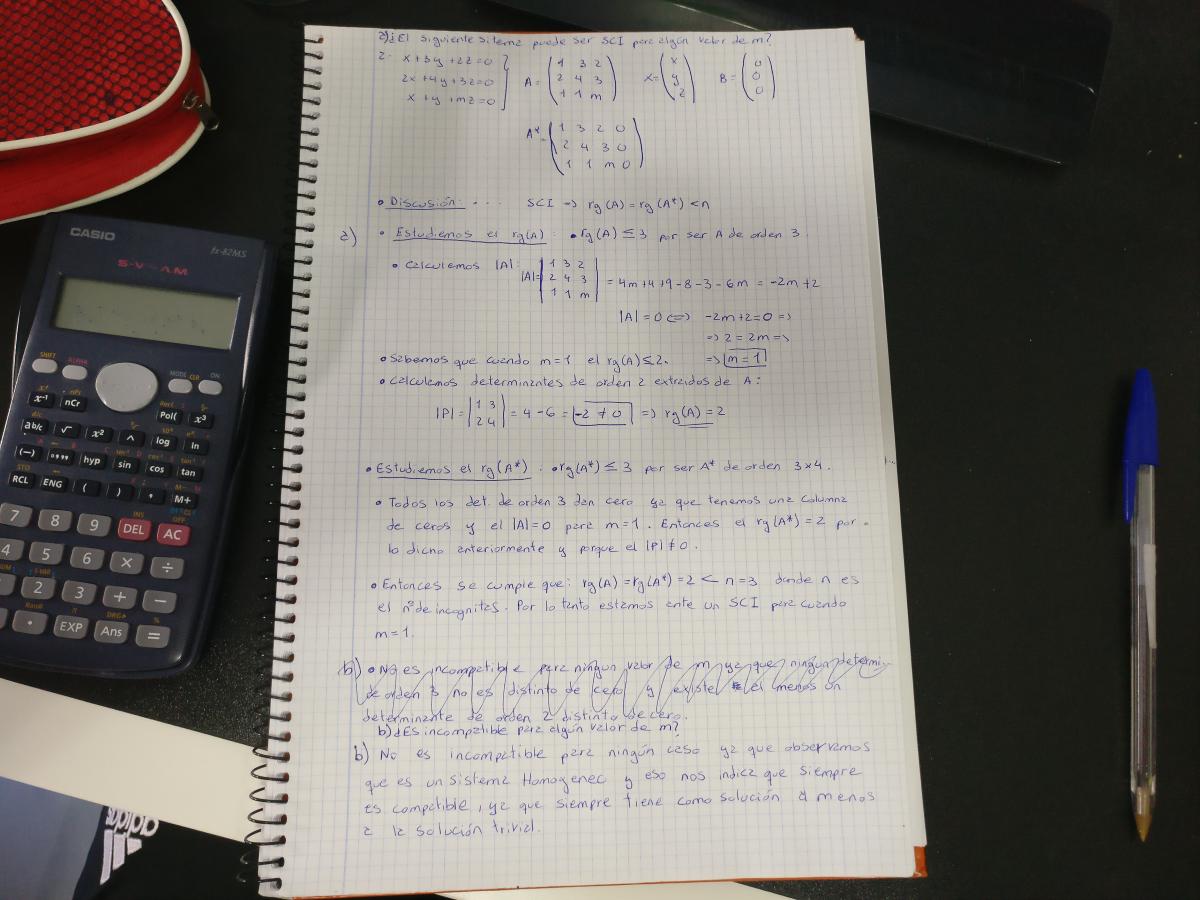 a) ¿El siguiente sitema puede ser SCI para algún valor de m?
2. x + 3y + 2z = 0
2x + 4y + 3z = 0
x + y + mz = 0
A = ( 1 3 2
2 4 3
1 1 m )
X = ( x
y
z )
B = ( 0
0
0 )
A* = ( 1 3 2 0
2 4 3 0
1 1 m 0 )
• Discusión: . . . SCI => rg(A) = rg(A*) < n
a) • Estudiemos el rg(A) : • rg(A) ≤ 3 por ser A de orden 3.
• Calculemos |A|: |A| = | 1 3 2
2 4 3
1 1 m | = 4m + 4 + 9 - 8 - 3 - 6m = -2m + 2
|A| = 0 <=> -2m + 2 = 0 =>
=> 2 = 2m =>
• Sabemos que cuando m = 1 el rg(A) ≤ 2. => m = 1
• Calculemos determinantes de orden 2 extraidos de A:
|P| = | 1 3
2 4 | = 4 - 6 = -2 ≠ 0 => rg(A) = 2
• Estudiemos el rg(A*) : • rg(A*) ≤ 3 por ser A* de orden 3x4.
• Todos los det. de orden 3 dan cero ya que tenemos una columna
de ceros y el |A| = 0 para m = 1. Entonces el rg(A*) = 2 por
lo dicho anteriormente y porque el |P| ≠ 0.
• Entonces se cumple que: rg(A) = rg(A*) = 2 < n = 3 donde n es
el nº de incognitas. Por lo tanto estamos ante un SCI para cuando
m = 1.
b) • No es incompatible para ningun valor de m ya que ningun determi-
de orden 3 no es distinto de cero y existe al menos un
determinante de orden 2 distinto de cero.
b) ¿Es incompatible para algún valor de m?
b) No es incompatible para ningún caso ya que observamos
que es un sistema Homogeneo y eso nos indica que siempre
es compatible, ya que siempre tiene como solución al menos
a la solución trivial.
CASIO
fx-82MS
S-V.P.A.M.
SHIFT
ALPHA
MODE CLR
ON
x⁻¹ nCr Pol( x³
ab/c √ x² ^ log ln
(-) °'" hyp sin cos tan
STO
RCL ENG ( ) , M+
INS OFF
7 8 9 DEL AC
4 5 6 × ÷
S-VAR
2 3 + −
Ran# π DRG▸ %
. EXP Ans =
adidas